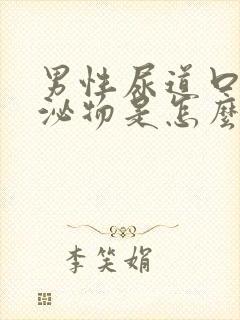 男性尿道口
泌物是怎麼
李笑娟